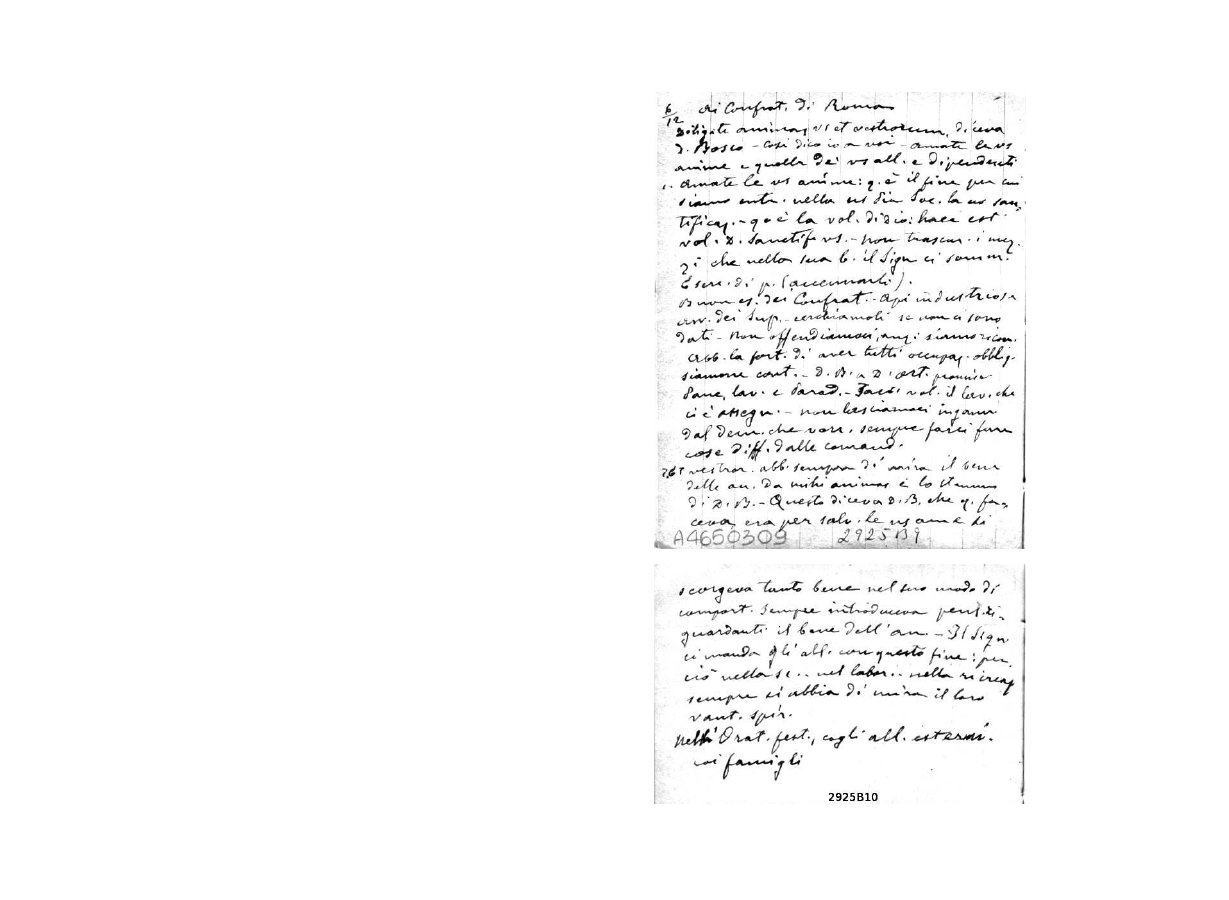 6/12 Ai Confrat. di Roma
Diligite animas vs et vestrorum, diceva
D. Bosco - Così dico io a voi - amate le vs
anime e quelle dei vs all. e dipendenti
1. Amate le vs anime: q. è il fine per cui
siamo entr. nella Soc. la ns san-
tificaz. - qo è la vol. di Dio: haec est
vol. D. sanctif. vs. - non trascur. i mez-
zi che nella sua b. il Sign. ci somm.
Eserc. di p. (accennarli).
Buon es. dei Confrat. - Api industriose
avv. dei Sup. - cerchiamoli se non ci sono
dati - non offendiamoci, anzi siamo ricon.
Abb. la fort. di aver tutti occupaz. obblig.
siamone cont. - D. B. a D. promise
Pane, lav. e Parad. - Facc. vol. il lav. che
ci è assegn. - non lasciamoci ingann.
dal dem. che vorr. sempre farci fare
cose diff. dalle comand.
2. Et vestror. abb. sempre di mira il bene
delle an. Da mihi animas è lo stemma
di D. B. - Questo diceva D. B. che q. fa-
ceva era per salv. le ns anime e si
A4650309 2925B9
scorgeva tanto bene nel suo modo di
comport. Sempre introduceva pens. ri-
guardanti il bene dell'an. - Il Sign.
ci manda gli all. con questo fine: per-
ciò nella sc. - nel labor. - nella ricreaz.
sempre si abbia di mira il loro
vant. spir.
Nelli Orat. fest., cogli all. esterni.
coi famigli
2925B10